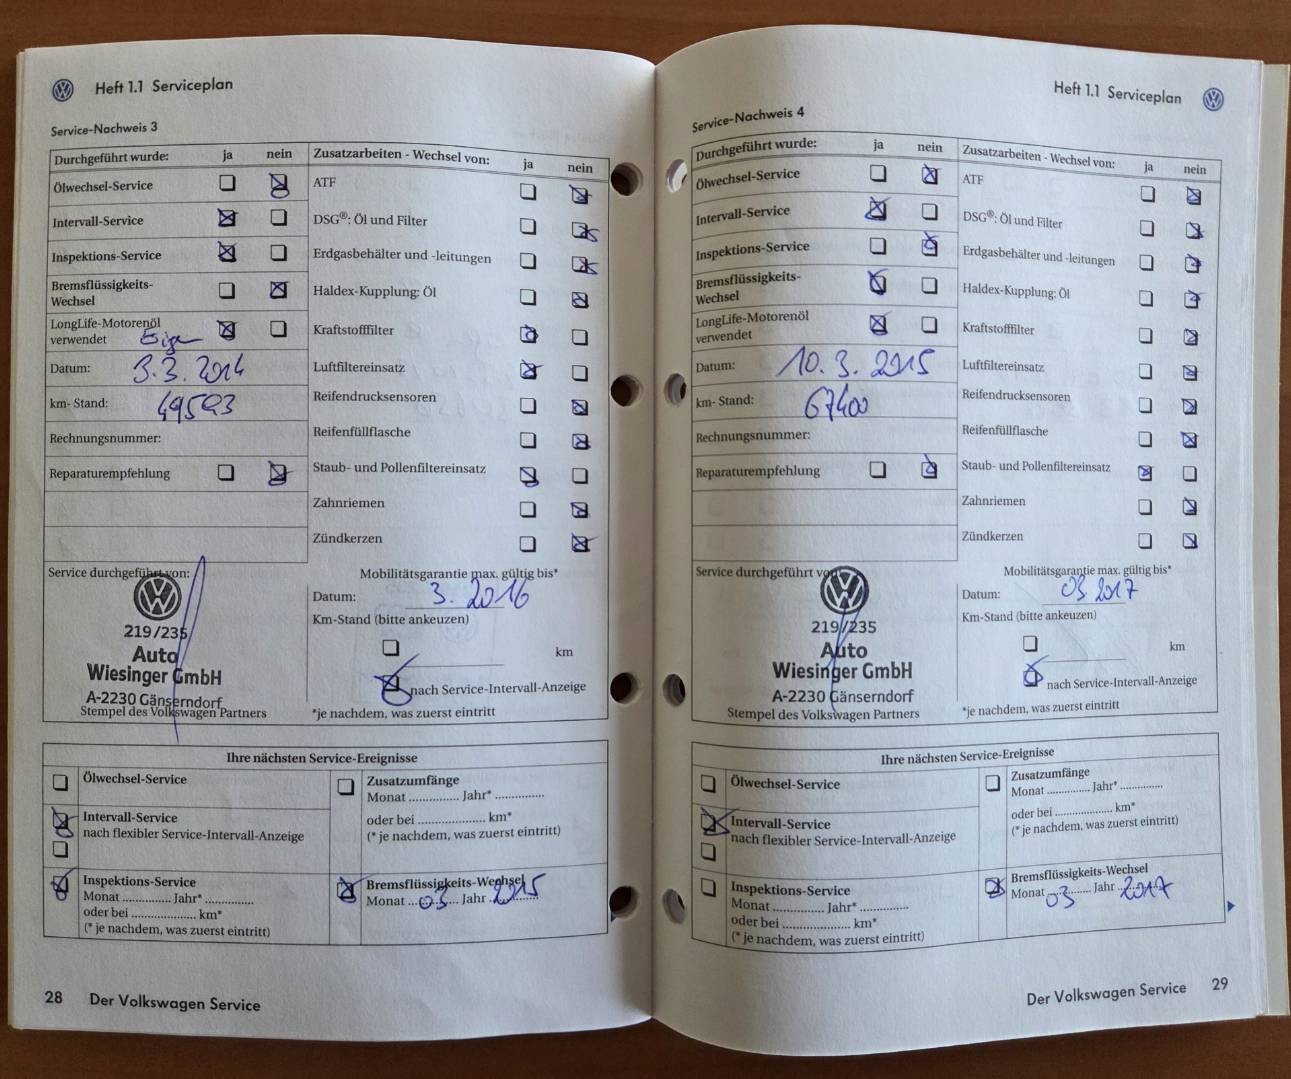 Heft 1.1 Serviceplan
Service-Nachweis 3
Durchgeführt wurde: ja nein
Ölwechsel-Service
Intervall-Service
Inspektions-Service
Bremsflüssigkeits-
Wechsel
LongLife-Motorenöl
verwendet Eigen
Datum: 3.3.2014
km- Stand: 49593
Rechnungsnummer:
Reparaturempfehlung
Zusatzarbeiten - Wechsel von: ja nein
ATF
DSG®: Öl und Filter
Erdgasbehälter und -leitungen
Haldex-Kupplung: Öl
Kraftstofffilter
Luftfiltereinsatz
Reifendrucksensoren
Reifenfüllflasche
Staub- und Pollenfiltereinsatz
Zahnriemen
Zündkerzen
Service durchgeführt von:
219/235
Auto
Wiesinger GmbH
A-2230 Gänserndorf
Stempel des Volkswagen Partners
Mobilitätsgarantie max. gültig bis*
Datum: 3. 2016
Km-Stand (bitte ankeuzen)
km
nach Service-Intervall-Anzeige
*je nachdem, was zuerst eintritt
Ihre nächsten Service-Ereignisse
Ölwechsel-Service
Intervall-Service
nach flexibler Service-Intervall-Anzeige
Inspektions-Service
Monat ............... Jahr* ...............
oder bei .................... km*
(* je nachdem, was zuerst eintritt)
Zusatzumfänge
Monat ............... Jahr* ...............
oder bei .................... km*
(* je nachdem, was zuerst eintritt)
Bremsflüssigkeits-Wechsel
Monat ...03... Jahr ...2015...
28 Der Volkswagen Service
Heft 1.1 Serviceplan
Service-Nachweis 4
Durchgeführt wurde: ja nein
Ölwechsel-Service
Intervall-Service
Inspektions-Service
Bremsflüssigkeits-
Wechsel
LongLife-Motorenöl
verwendet
Datum: 10. 3. 2015
km- Stand: 67400
Rechnungsnummer:
Reparaturempfehlung
Zusatzarbeiten - Wechsel von: ja nein
ATF
DSG®: Öl und Filter
Erdgasbehälter und -leitungen
Haldex-Kupplung: Öl
Kraftstofffilter
Luftfiltereinsatz
Reifendrucksensoren
Reifenfüllflasche
Staub- und Pollenfiltereinsatz
Zahnriemen
Zündkerzen
Service durchgeführt von:
219/235
Auto
Wiesinger GmbH
A-2230 Gänserndorf
Stempel des Volkswagen Partners
Mobilitätsgarantie max. gültig bis*
Datum: 03 2017
Km-Stand (bitte ankeuzen)
km
nach Service-Intervall-Anzeige
*je nachdem, was zuerst eintritt
Ihre nächsten Service-Ereignisse
Ölwechsel-Service
Intervall-Service
nach flexibler Service-Intervall-Anzeige
Inspektions-Service
Monat ............... Jahr* ...............
oder bei .................... km*
(* je nachdem, was zuerst eintritt)
Zusatzumfänge
Monat ............... Jahr* ...............
oder bei .................... km*
(* je nachdem, was zuerst eintritt)
Bremsflüssigkeits-Wechsel
Monat 03 Jahr 2017
Der Volkswagen Service 29